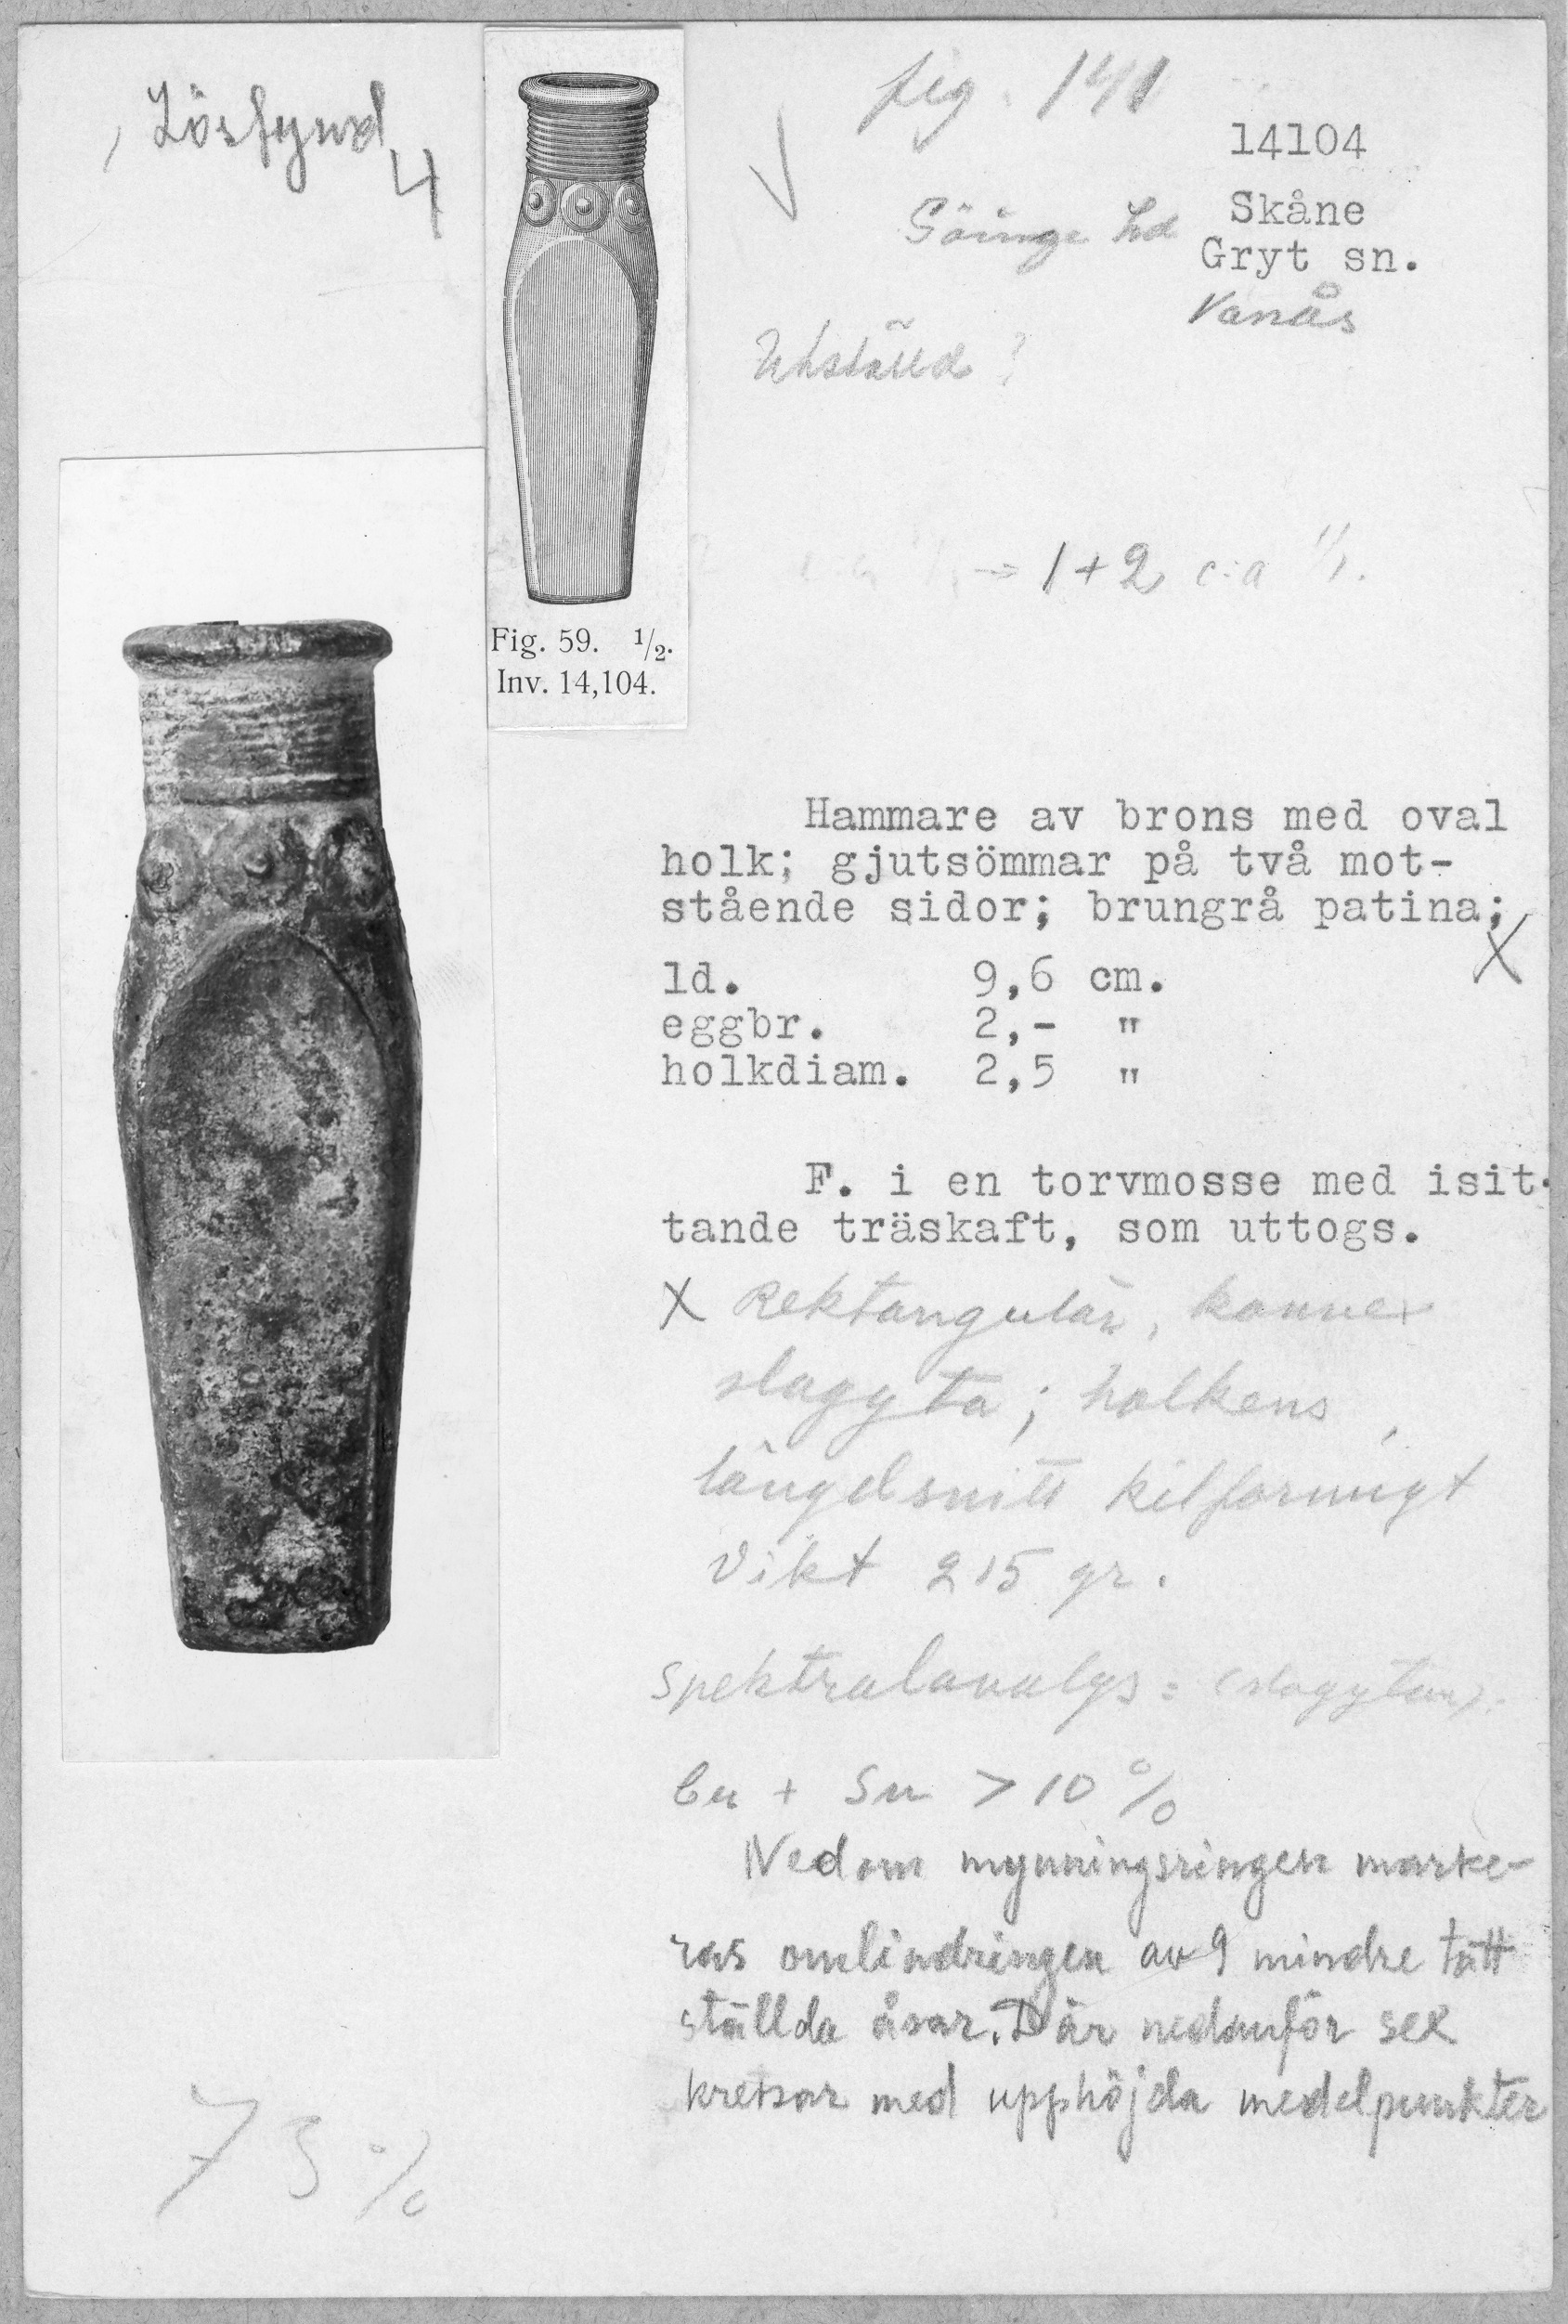 Lösfynd
4
fig. 141
14104
Göinge hd Skåne
Gryt sn.
Vanås
Utställd ?
1+2 c:a 1/1.
Fig. 59. 1/2.
Inv. 14,104.
Hammare av brons med oval
holk; gjutsömmar på två mot-
stående sidor; brungrå patina;
X
ld. 9,6 cm.
eggbr. 2,- "
holkdiam. 2,5 "
F. i en torvmosse med isit-
tande träskaft, som uttogs.
X Rektangulär, konvex
slagyta; holkens
längdsnitt kilformigt
Vikt 215 gr.
Spektralanalys: (slagytan).
Cu + Sn > 10 %
Nedom mynningsringen marke-
ras omlindringen av 9 mindre tätt
ställda åsar. Där nedanför sex
kretsar med upphöjda medelpunkter
73 %